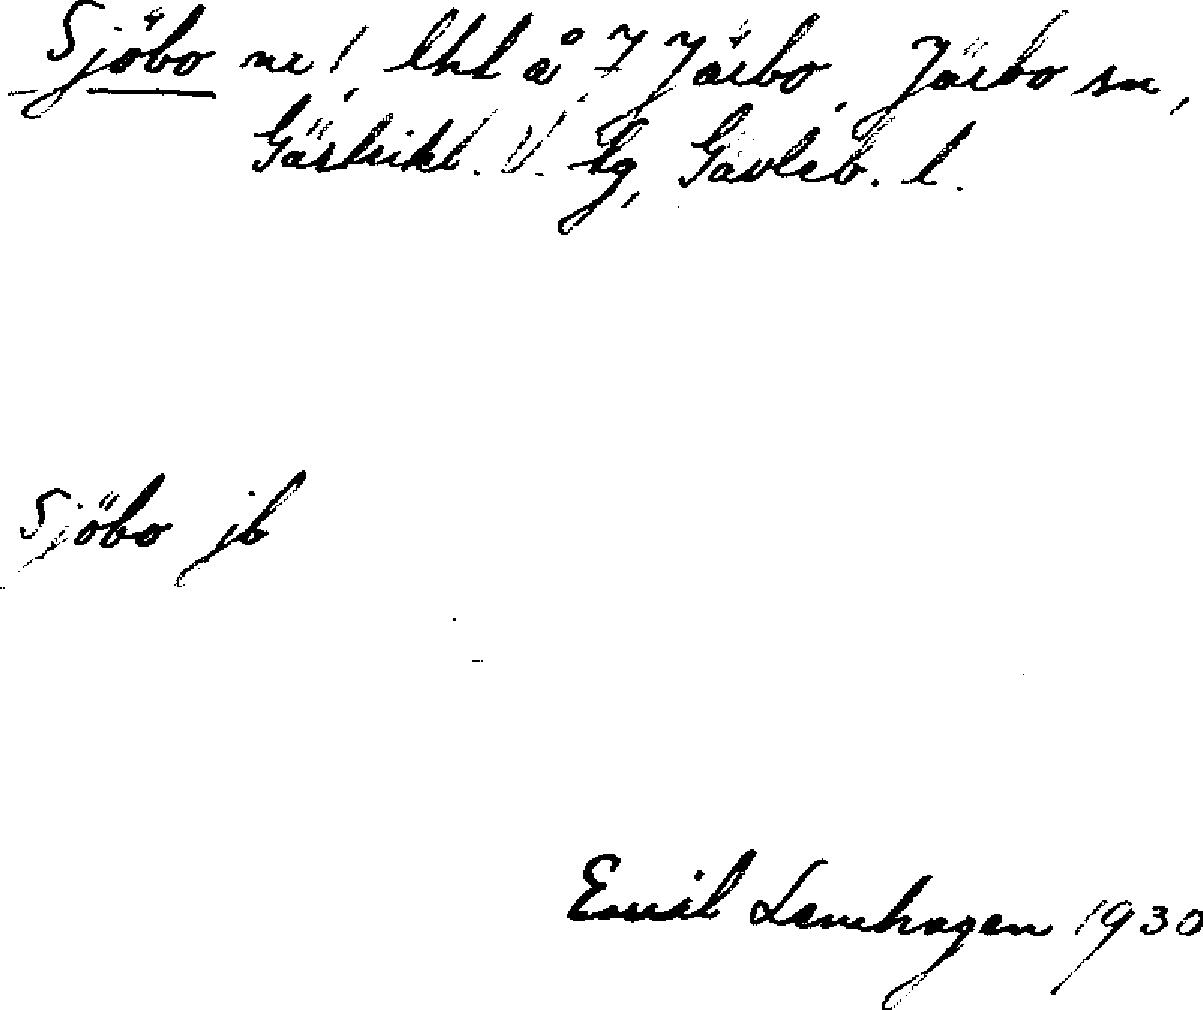 Sjöbo nr 1, lht å 7 Järbo, Järbo sn,
Gästrikl. V. tg, Gävleb. l.
Sjöbo jb
Emil Lenhagen 1930